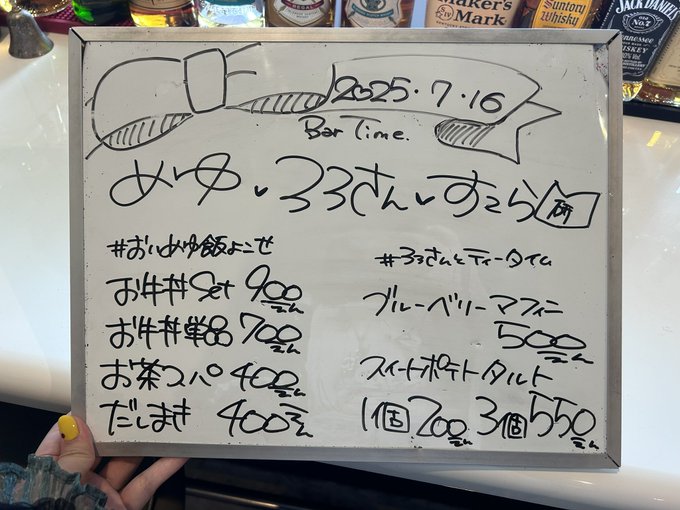 Maker's Mark
Suntory Whisky
JACK DANIEL'S
No.7
Tennessee
WHISKEY
2025・7・16
Bar Time.
めゆ♥ろろさん♥すこら 研
#おいめゆ飯よこせ
お牛丼set 900えん
お牛丼単品 700えん
お茶スパ 400えん
だしまき 400えん
#ろろさんとティータイム
ブルーベリーマフィン
500えん
スイートポテトタルト
1個200えん 3個550えん